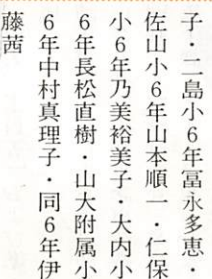 子・二島小６年冨永多恵・
佐山小６年山本順一・仁保
小６年乃美裕美子・大内小
６年長松直樹・山大附属小
６年中村真理子・同６年伊
藤茜